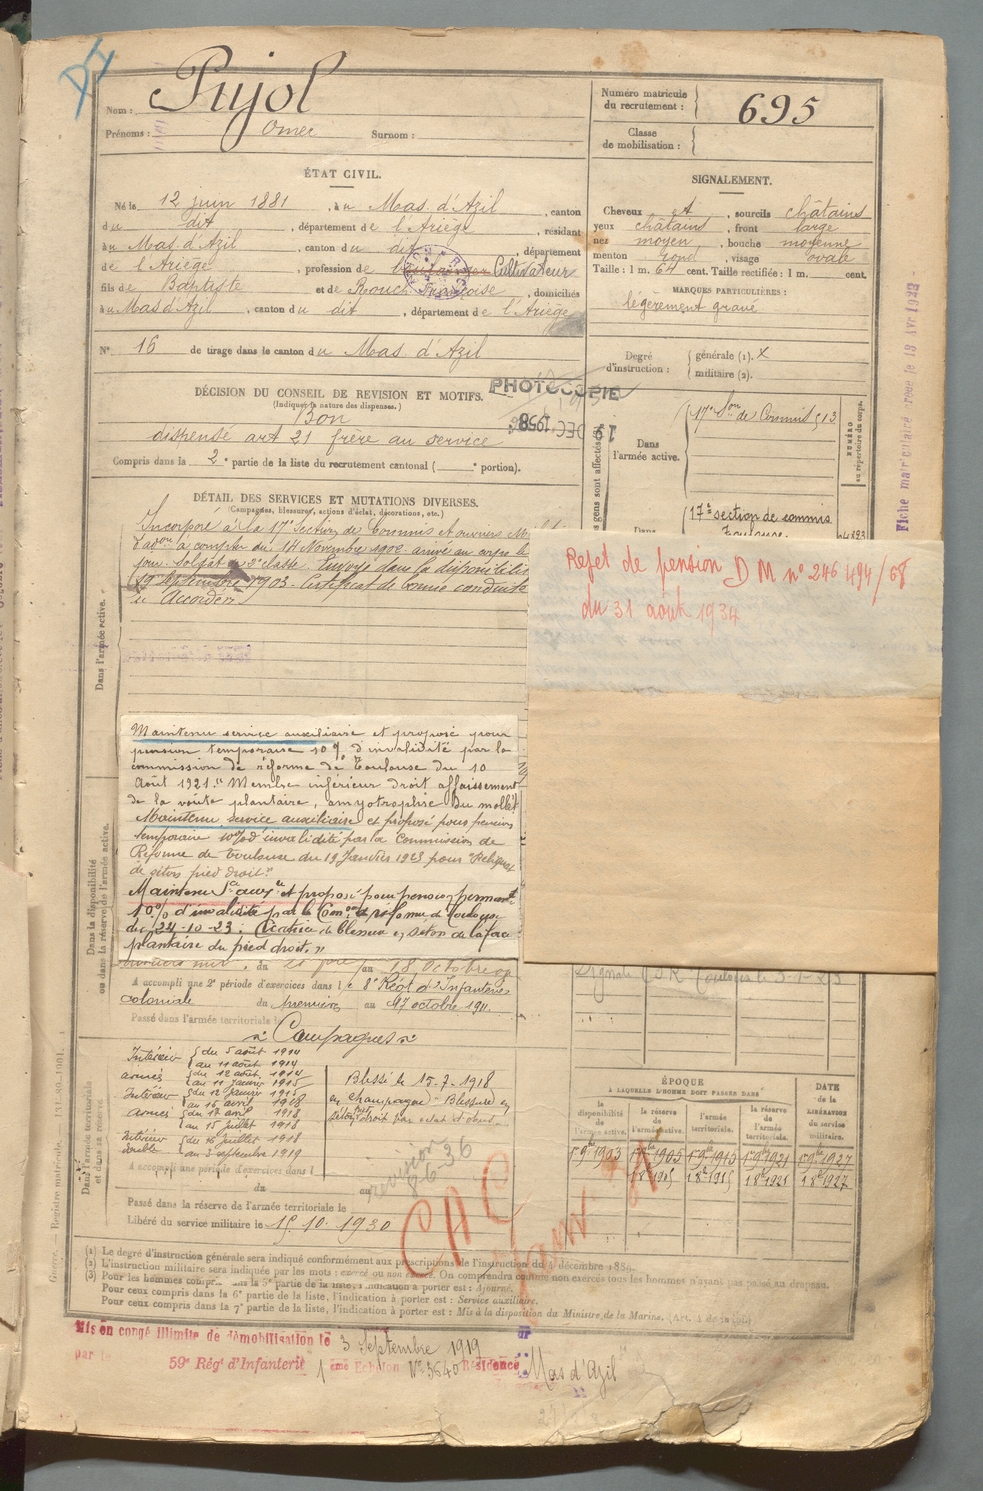 Nom : Pujol
Prénoms : Omer Surnom :
Numéro matricule du recrutement : 695
Classe de mobilisation :
ÉTAT CIVIL.
Né le 12 juin 1881, à u Mas d'Azil, canton
du dit, département de l'Ariège, résidant
à u Mas d'Azil, canton du dit, département
de l'Ariège, profession de Cultivateur
fils de Baptiste et de Rouch Françoise, domiciliés
à u Mas d'Azil, canton du dit, département de l'Ariège
N° 16 de tirage dans le canton du Mas d'Azil
SIGNALEMENT.
Cheveux et, sourcils châtains
yeux châtains, front large
nez moyen, bouche moyenne
menton rond, visage ovale
Taille : 1 m. 64 cent. Taille rectifiée : 1 m. cent.
MARQUES PARTICULIÈRES :
légèrement gravé
Degré d'instruction : générale (1). X
militaire (2).
DÉCISION DU CONSEIL DE REVISION ET MOTIFS.
(Indiquer la nature des dispenses.)
Bon
dispensé art 21 frère au service
Compris dans la 2e partie de la liste du recrutement cantonal ( e portion).
PHOTOCOPIE
DEC 1958
Dans l'armée active.
17e Son de Commis 513
NUMÉRO au répertoire du corps.
17e section de commis
Toulouse
Fiche matriculaire
DÉTAIL DES SERVICES ET MUTATIONS DIVERSES.
(Campagnes, blessures, actions d'éclat, décorations, etc.)
Incorporé à la 17e Section de Commis et ouvriers
d'adon à compter du 14 Novembre 1902 arrivé au corps le
jour. Soldat de 2e classe. Envoyé dans la disponibilité
19 septembre 1903. Certificat de bonne conduite
Accordé
Rejet de pension D M n° 246 494/68
du 31 août 1934
Dans l'armée active.
Maintenu service auxiliaire et proposé pour
pension temporaire 10 % d'invalidité par la
commission de réforme de Toulouse du 10
Août 1921. "Membre inférieur droit affaissement
de la voûte plantaire, amyotrophie du mollet
Maintenu service auxiliaire et proposé pour pension
temporaire 10% d'invalidité par la Commission de
Réforme de Toulouse du 19 Janvier 1923 pour "Reliquat
de séton pied droit."
Maintenu Sce auxre et proposé pour pension permante
10 % d'invalidité par la Comon de réforme de Toulouse
du 24-10-23. Cicatrice de blessure en séton de la face
plantaire du pied droit. "
Dans la disponibilité ou dans la réserve de l'armée active.
18 Octobre
A accompli une 2e période d'exercices dans le 8e Régt d'Infanterie
coloniale du premier au 17 octobre 1911.
Passé dans l'armée territoriale le
Campagnes
Intérieur du 5 août 1914
au 11 août 1914
armées du 12 août 1914
au 11 janvier 1915
Intérieur du 12 janvier 1915
au 16 avril 1918
Armées du 17 avril 1918
au 15 juillet 1918
Intérieur du 16 juillet 1918
double au 3 septembre 1919
Blessé le 15-7-1918
en Champagne - Blessure en
séton pied droit par éclat d'obus
Dans l'armée territoriale et dans sa réserve
A accompli une période d'exercices dans l
du au
revision
8-6-36
Passé dans la réserve de l'armée territoriale le
Libéré du service militaire le 15.10.1930
ÉPOQUE
À LAQUELLE L'HOMME DOIT PASSER DANS
la disponibilité de l'armée active.
la réserve de l'armée active.
l'armée territoriale.
la réserve de l'armée territoriale.
DATE de la LIBÉRATION du service militaire.
(1) Le degré d'instruction générale sera indiqué conformément aux prescriptions de l'instruction du 4 décembre 1889.
(2) L'instruction militaire sera indiquée par les mots : exercé ou non exercé. On comprendra comme non exercés tous les hommes n'ayant pas passé au drapeau.
(3) Pour les hommes compris dans la 5e partie de la liste, l'indication à porter est : Ajourné.
Pour ceux compris dans la 6e partie de la liste, l'indication à porter est : Service auxiliaire.
Pour ceux compris dans la 7e partie de la liste, l'indication à porter est : Mis à la disposition du Ministre de la Marine.
Mis en congé illimité de démobilisation le 3 Septembre 1919
par le 59e Régt d'Infanterie 1 ème Echelon N° 3640 Résidence Mas d'Azil